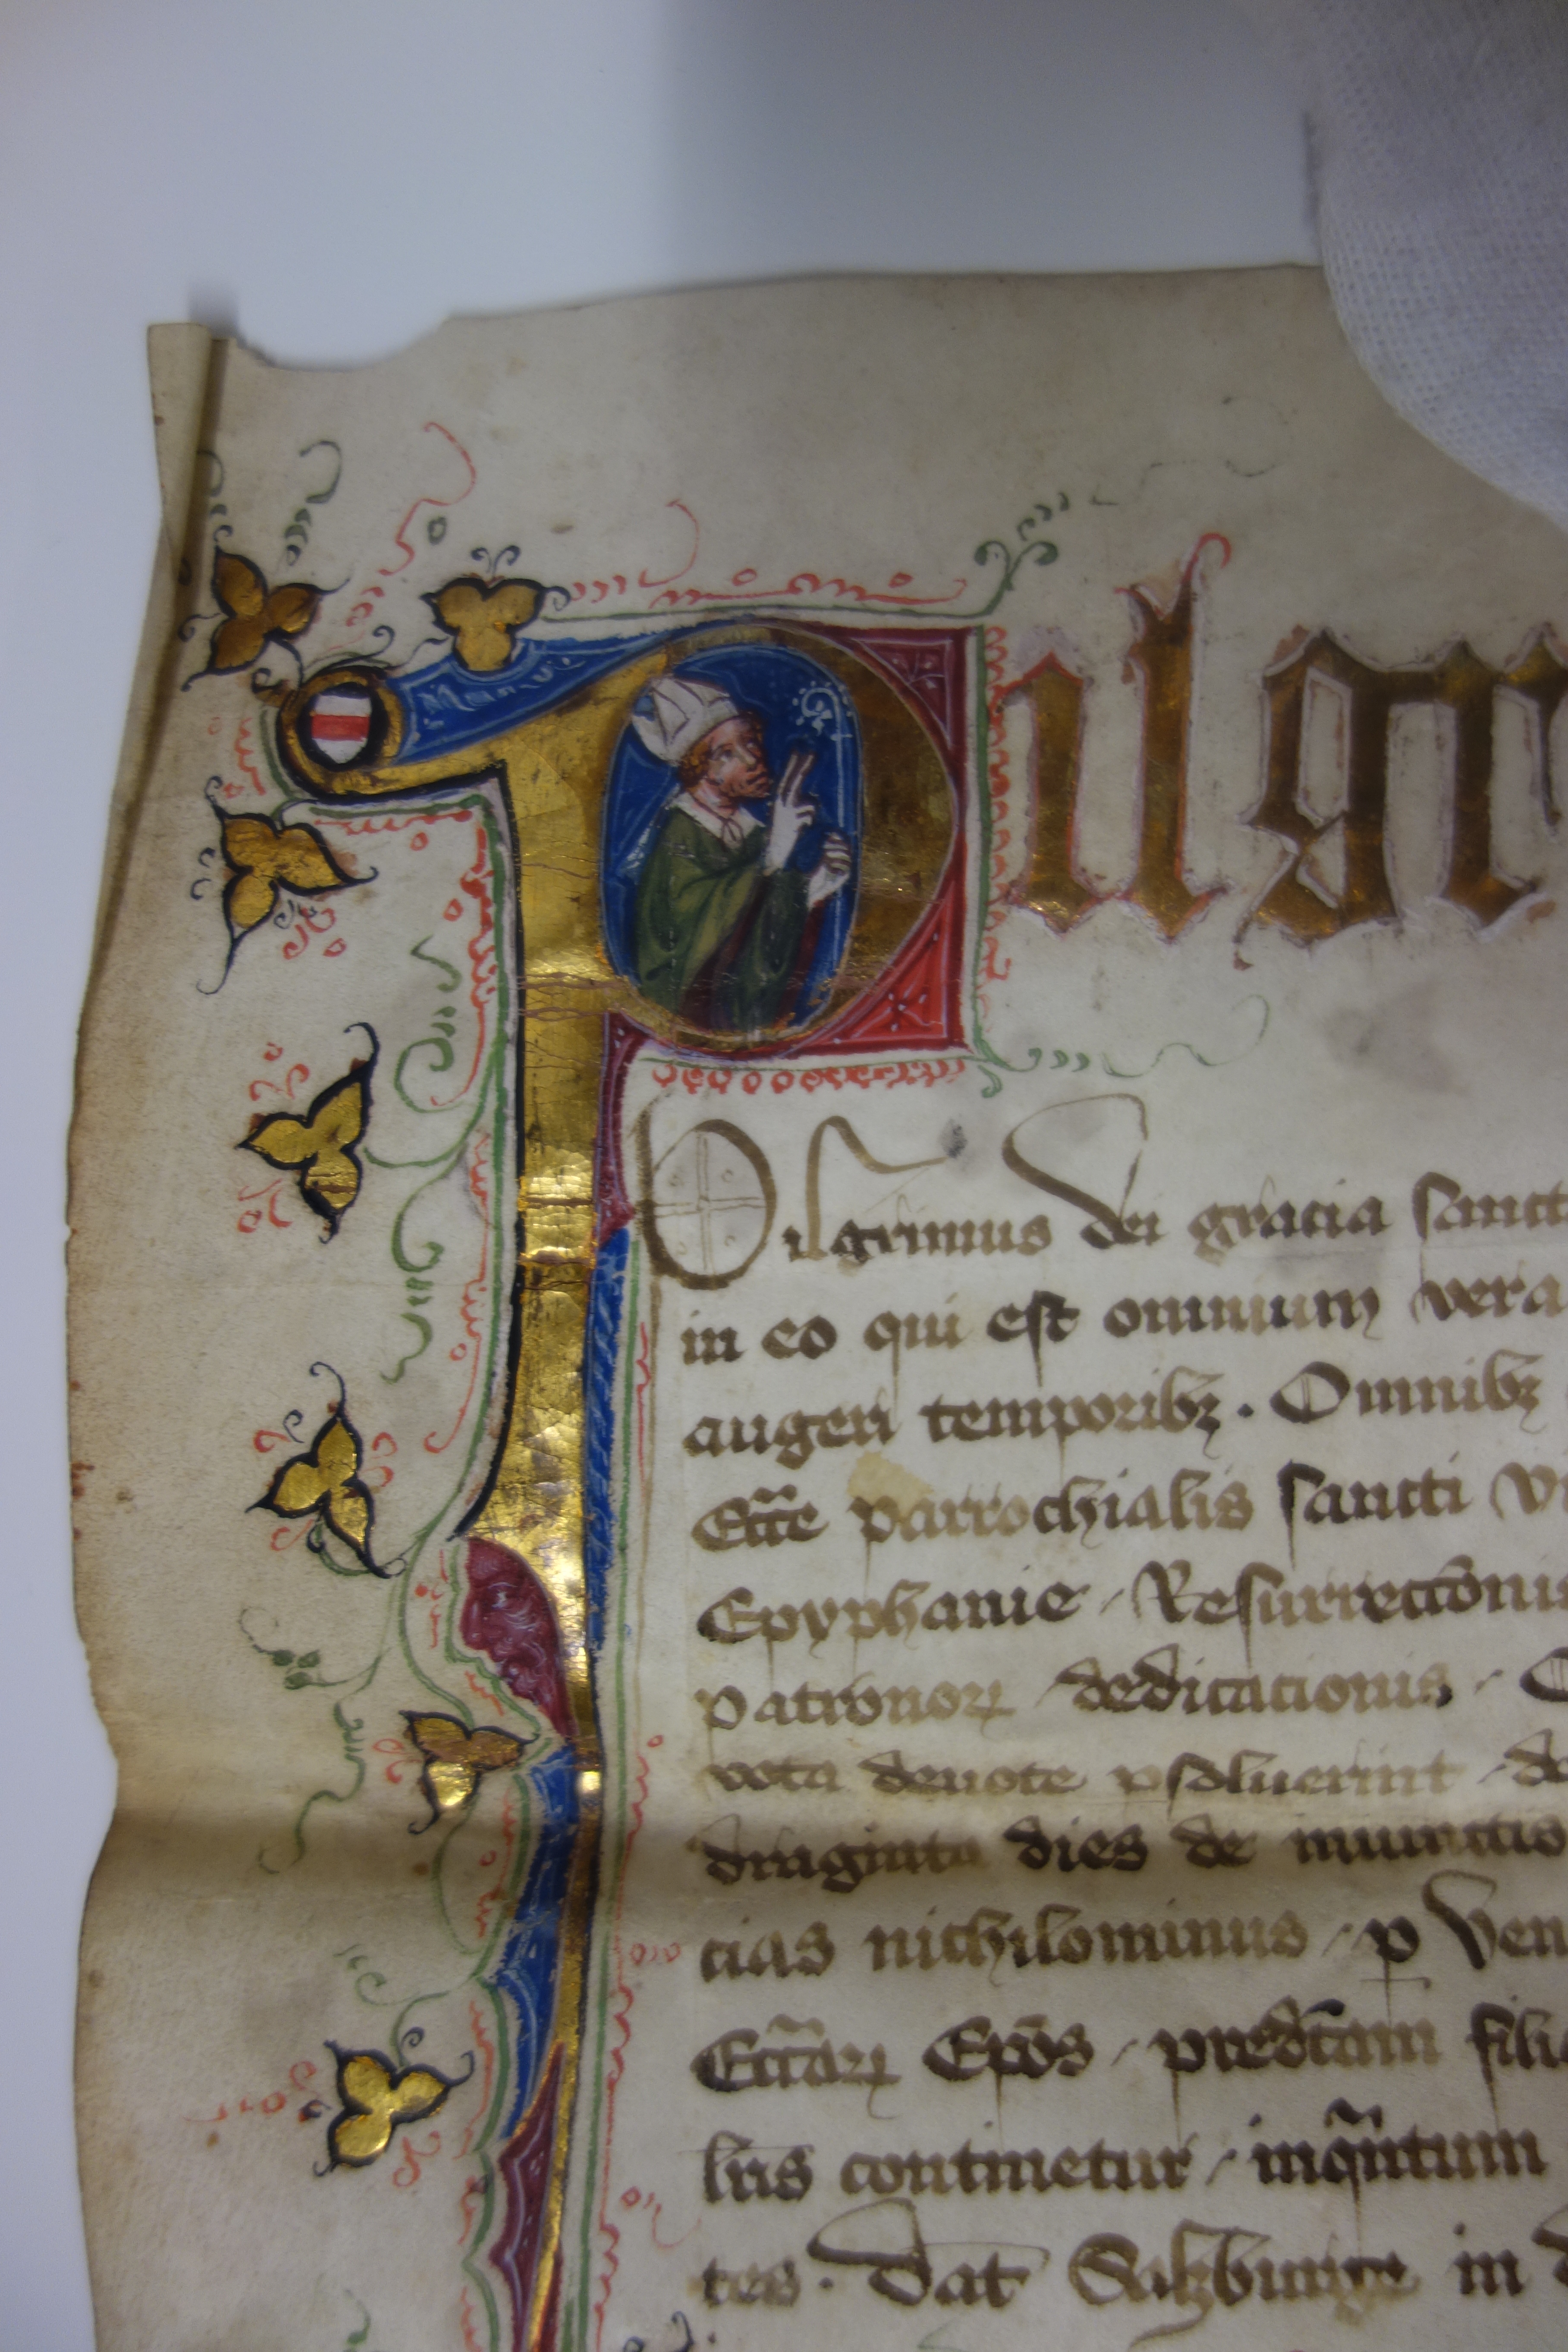 Pilgr
Pilgrimus dei gracia sanct
in eo qui est omnium vera
augeri temporibz. Omnibz
Eccͤ parrochialis sancti
Epyphanie / Resurrecc̄onis
patronoꝝ / dedicacionis /
vota deuote psoluerint / de
draginta dies de iniunctis
cias nichilominus / ꝑ Ven
Eccāꝝ Ep̄os / pred̄cam filio
bris continetur / inqͣntum
tes. Dat̄ Salzburge in d